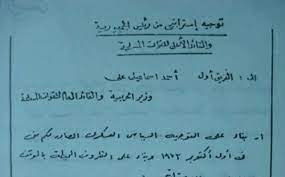 توجيه إستراتيجى من رئيس الجمهورية
والقائد الأعلى للقوات المسلحة
الى : الفريق أول أحمد اسماعيل على
وزير الحربية والقائد العام للقوات المسلحة
١- بناء على التوجيه السياسى العسكرى الصادر لكم منى
فى أول أكتوبر ١٩٧٣ وبناء على الظروف المحيطة بالموقف